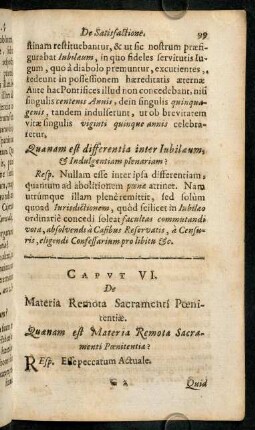 De Satisfactione. 99
stinam restituebantur, & ut sic nostrum præfi-
gurabat Iubilæum, in quo fideles servitutis Iu-
gum, quo à diabolo premuntur, excutientes,
redeunt in possessionem hæreditatis æternæ
Ante hac Pontifices illud non concedebant, nisi
singulis centenis Annis, dein singulis quinqua-
genis, tandem indulserunt, ut ob brevitatem
vitæ singulis viginti quinque annis celebra-
retur.
Quænam est differentia inter Iubilæum,
& Indulgentiam plenariam?
Resp. Nullam esse inter ipsa differentiam,
quantum ad abolitionem pœnæ attinet. Nam
utrumque illam plenè remittit, sed solum
quoad Iurisdictionem, quòd scilicet in Iubilæo
ordinariè concedi soleat facultas commutandi
vota, absolvendi à Casibus Reservatis, à Censu-
ris, eligendi Confessarium pro libitu &c.
CAPVT VI.
De
Materia Remota Sacramenti Pœni-
tentiæ.
Quænam est Materia Remota Sacra-
menti Pœnitentiæ?
REsp. Esse peccatum Actuale.
G 2 Quid